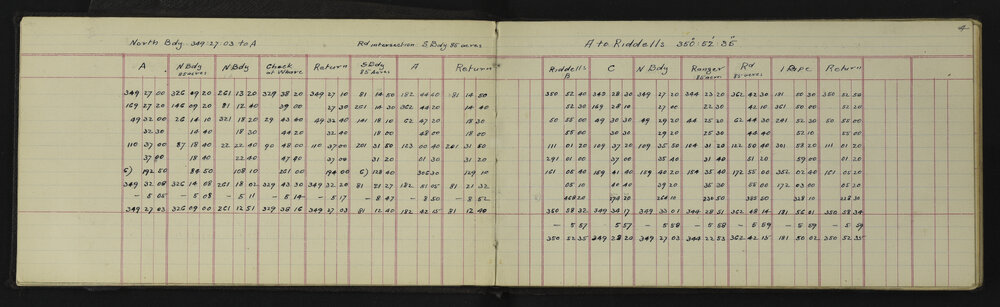 4
North Bdy 349:27:03 to A Rd intersection S Bdy 85 acres
A N Bdy 85 acres N Bdy Check at Whare Return S Bdy 85 Acres A Return
349 27 00 326 09 20 261 13 20 329 38 20 349 27 10 81 14 50 182 44 40 81 14 50
169 27 20 146 09 20 81 12 40 39 00 27 30 261 14 30 362 44 20 14 40
49 32 00 26 14 10 321 18 20 29 43 40 49 32 40 141 18 10 62 47 20 18 30
32 30 14 40 18 30 44 20 32 40 18 00 48 00 18 00
110 37 00 87 18 40 22 40 90 48 00 110 37 00 201 31 50 123 00 40 201 31 50
37 00 18 40 22 40 47 40 37 00 31 20 01 30 31 20
6) 192 50 84 50 108 10 261 00 194 00 6) 128 40 129 10
349 32 08 326 14 08 261 18 02 329 43 30 349 32 20 81 21 27 182 51 05 81 21 32
– 5 05 – 5 08 – 5 11 – 5 14 – 5 17 – 8 47 – 8 50 – 8 52
349 27 03 326 09 00 261 12 51 329 38 16 349 27 03 81 12 40 182 42 15 81 12 40
A to Riddells 350°:52':35"
Riddells B C N Bdy Ranger 85 acres Rd 85 acres 1 Rd pc Return
350 52 40 349 28 30 349 27 20 344 23 20 362 42 30 181 50 30 350 52 50
52 30 169 28 10 27 00 22 30 42 10 361 50 20 52 20
50 55 00 49 30 30 49 29 20 44 25 20 62 44 30 241 52 30 50 55 00
55 00 30 30 29 20 25 30 44 40 52 10 55 00
111 01 20 109 37 20 109 35 50 104 31 20 122 50 40 301 58 20 111 01 20
291 01 00 37 00 35 40 31 40 51 20 59 00 01 20
161 05 40 159 41 40 159 40 20 154 35 40 172 55 00 352 02 40 161 05 20
05 10 40 40 39 20 35 30 55 00 172 03 00 05 20
468 20 274 20 264 10 230 50 385 50 328 10
350 58 32 349 34 17 349 33 01 344 28 51 362 48 14 181 56 01 350 58 34
– 5 57 – 5 57 – 5 58 – 5 58 – 5 59 – 5 59 – 5 59
350 52 35 349 28 20 349 27 03 344 22 53 362 42 15 181 50 02 350 52 35